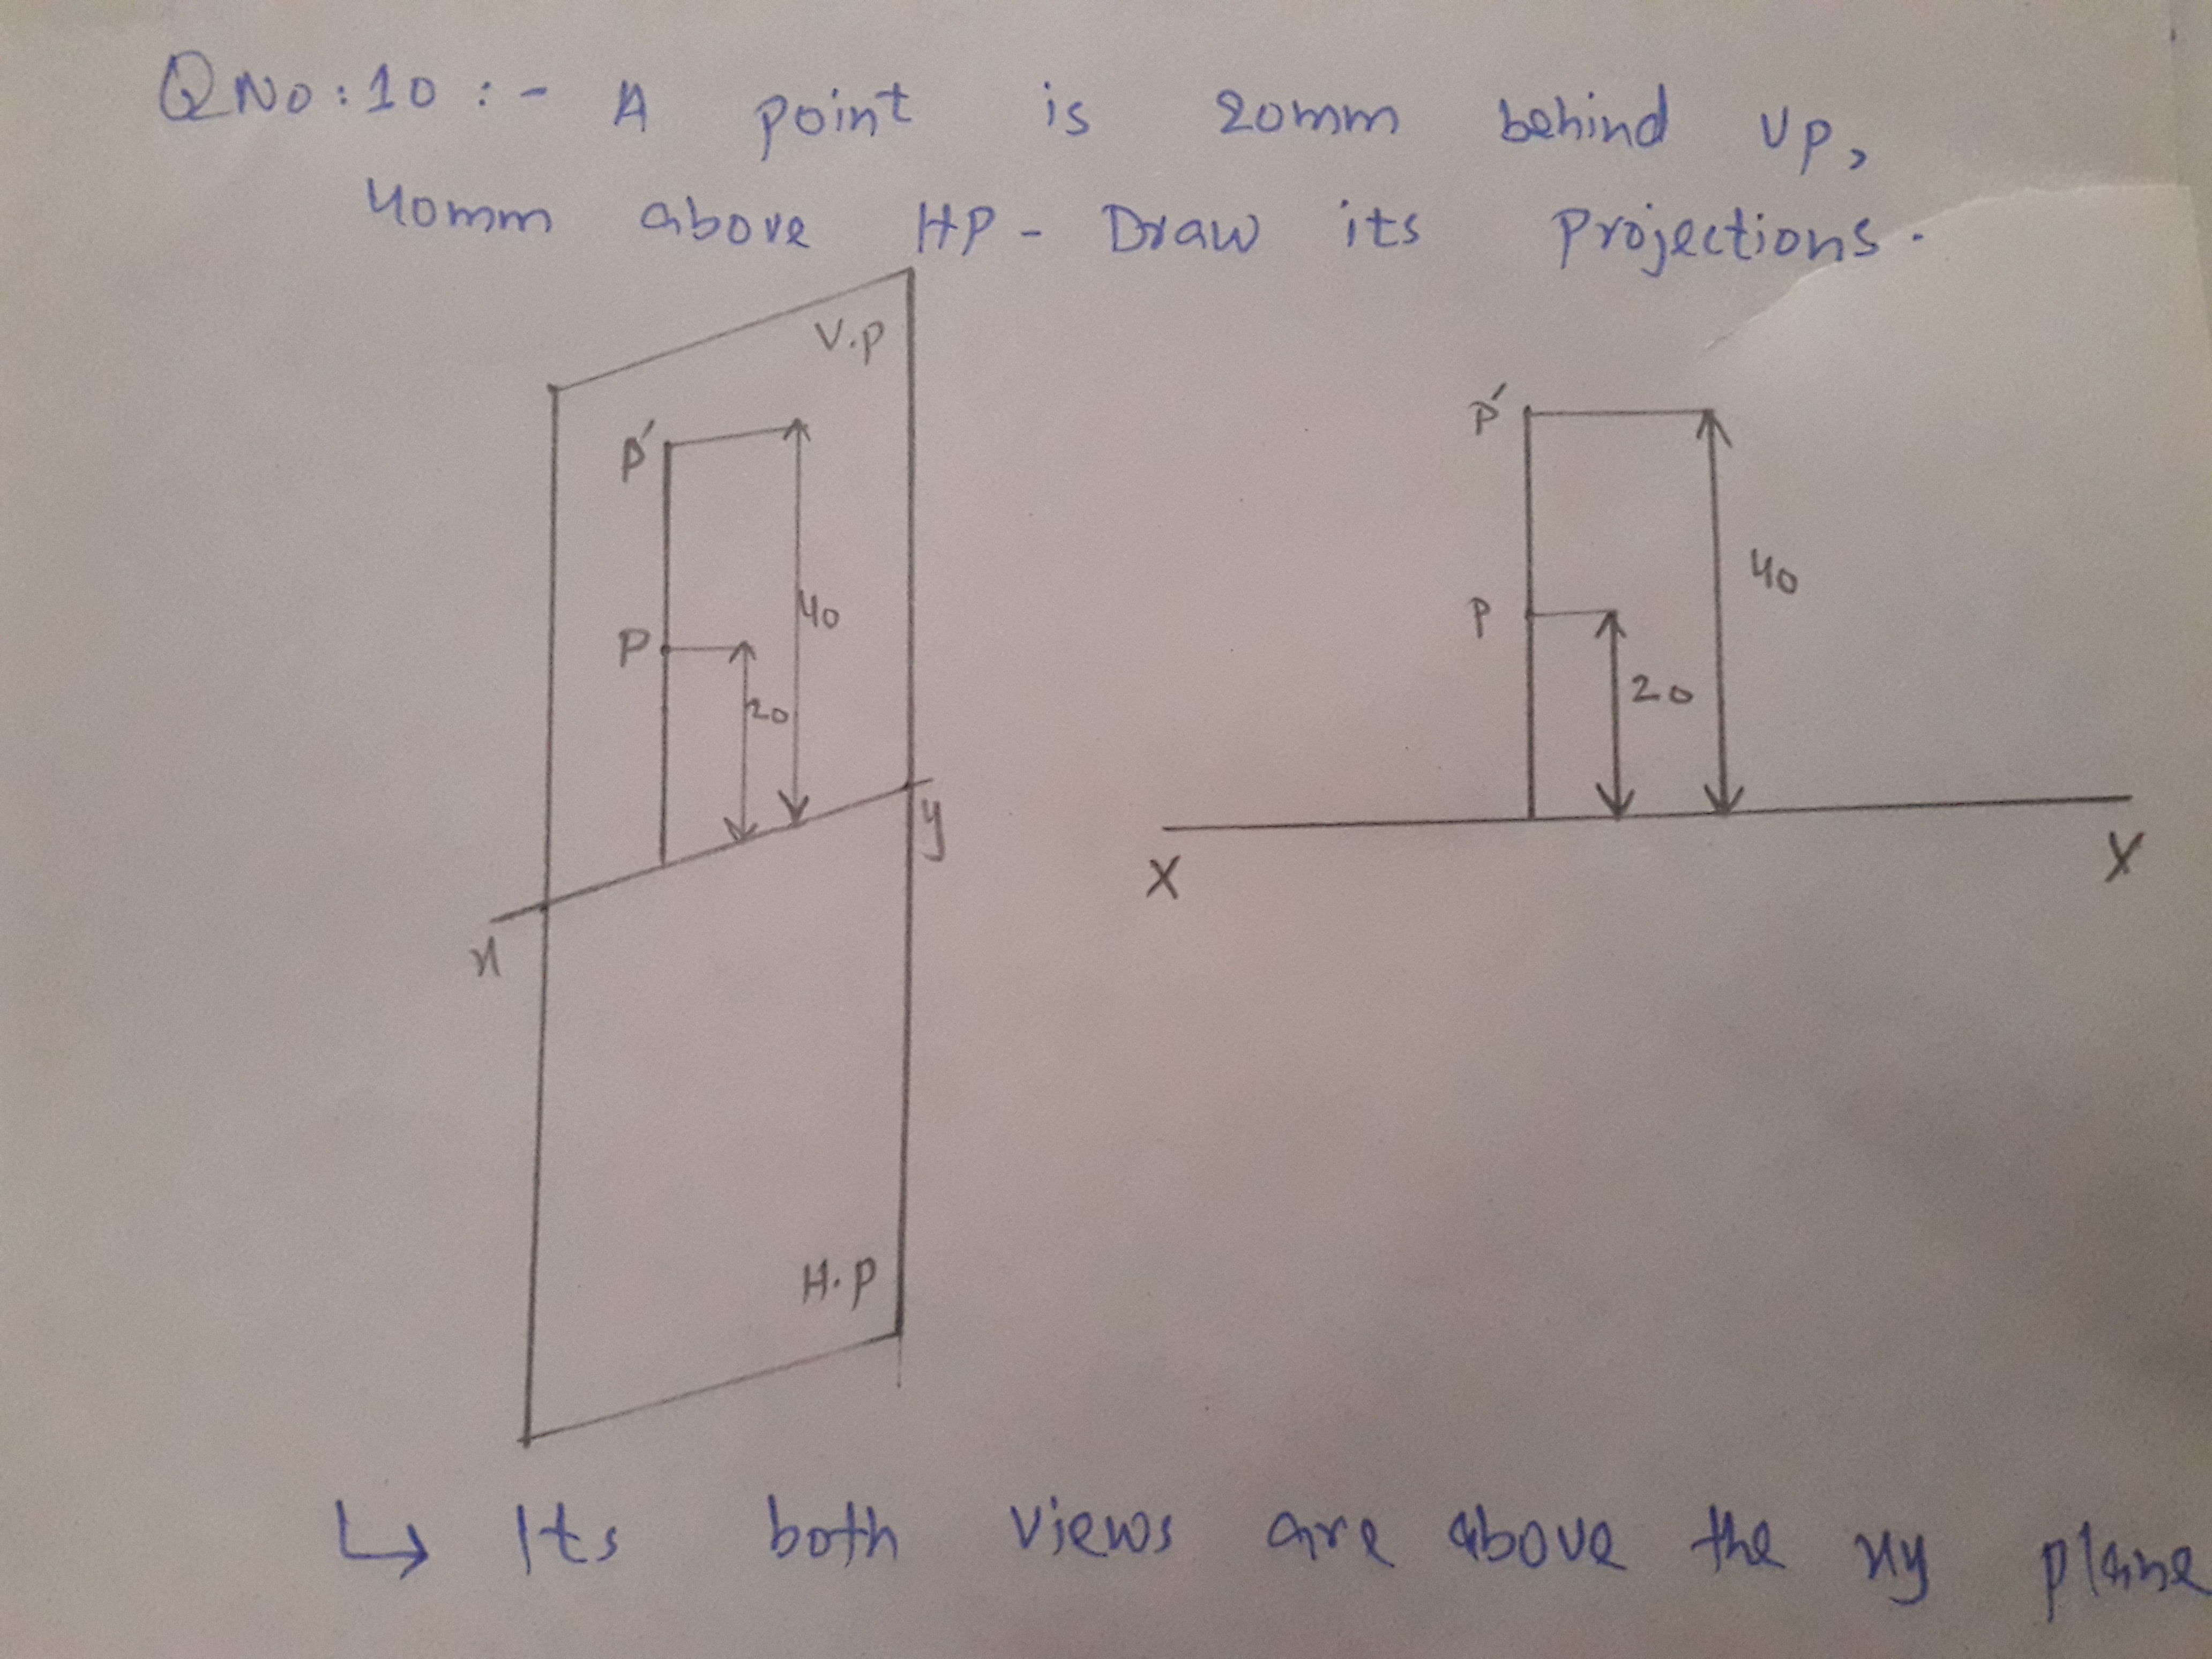 QNo:10 :- A point is 20mm behind VP,
40mm above HP - Draw its projections.
V.P
p´
40
P
20
y
x
H.P
p´
40
P
20
X
Y
↳ Its both views are above the xy plane